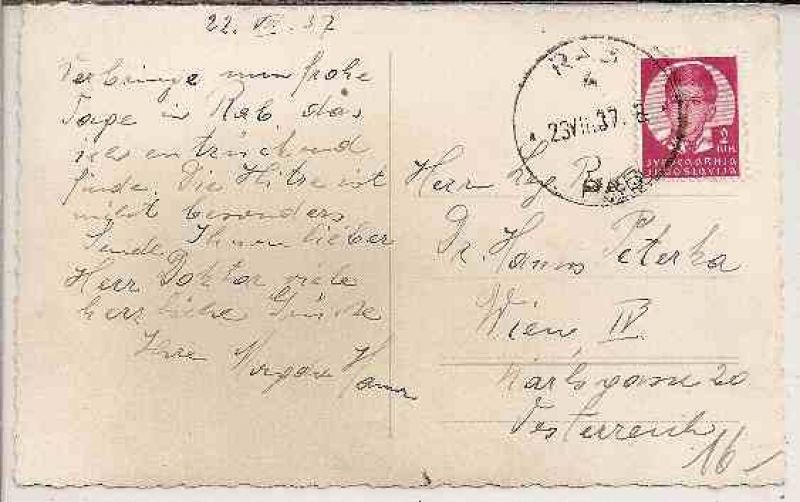 22. VII. 37
Verbringe nun frohe
Tage in Rab das
ich entzückend
finde. Die Hitze ist
nicht besonders
Sende Ihnen lieber
Herr Doktor viele
herzliche Grüsse
Ihre
RAB
23 VII. 37. 8
РАБ
2
ДИН.
ЈУГОСЛАВИЈА
JUGOSLAVIJA
Herrn
Dr. Hanns Peterka
Wien IV
Karlsgasse 20
Österreich
16-